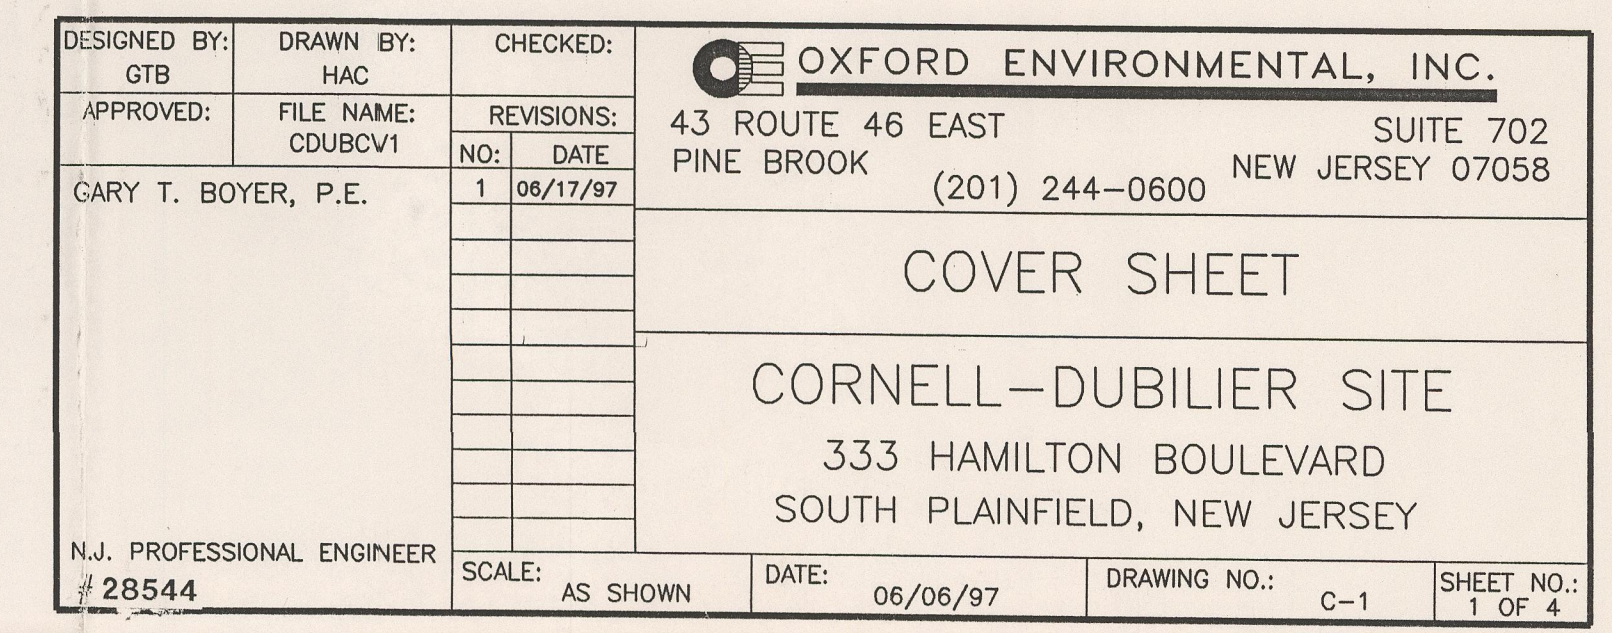 DESIGNED BY:
GTB
DRAWN BY:
HAC
CHECKED:
APPROVED:
FILE NAME:
CDUBCV1
REVISIONS:
NO:
DATE
1
06/17/97
GARY T. BOYER, P.E.
N.J. PROFESSIONAL ENGINEER
# 28544
OXFORD ENVIRONMENTAL, INC.
43 ROUTE 46 EAST
SUITE 702
PINE BROOK
NEW JERSEY 07058
(201) 244-0600
COVER SHEET
CORNELL-DUBILIER SITE
333 HAMILTON BOULEVARD
SOUTH PLAINFIELD, NEW JERSEY
SCALE:
AS SHOWN
DATE:
06/06/97
DRAWING NO.:
C-1
SHEET NO.:
1 OF 4